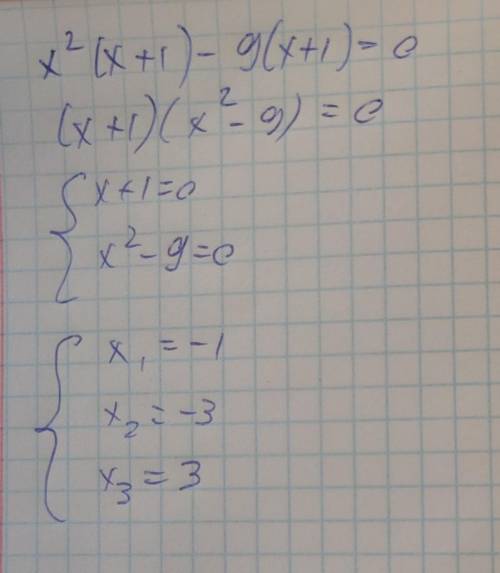 x²(x+1)-9(x+1)=0
(x+1)(x²-9)=0
{x+1=0
x²-9=0
{x₁=-1
x₂=-3
x₃=3